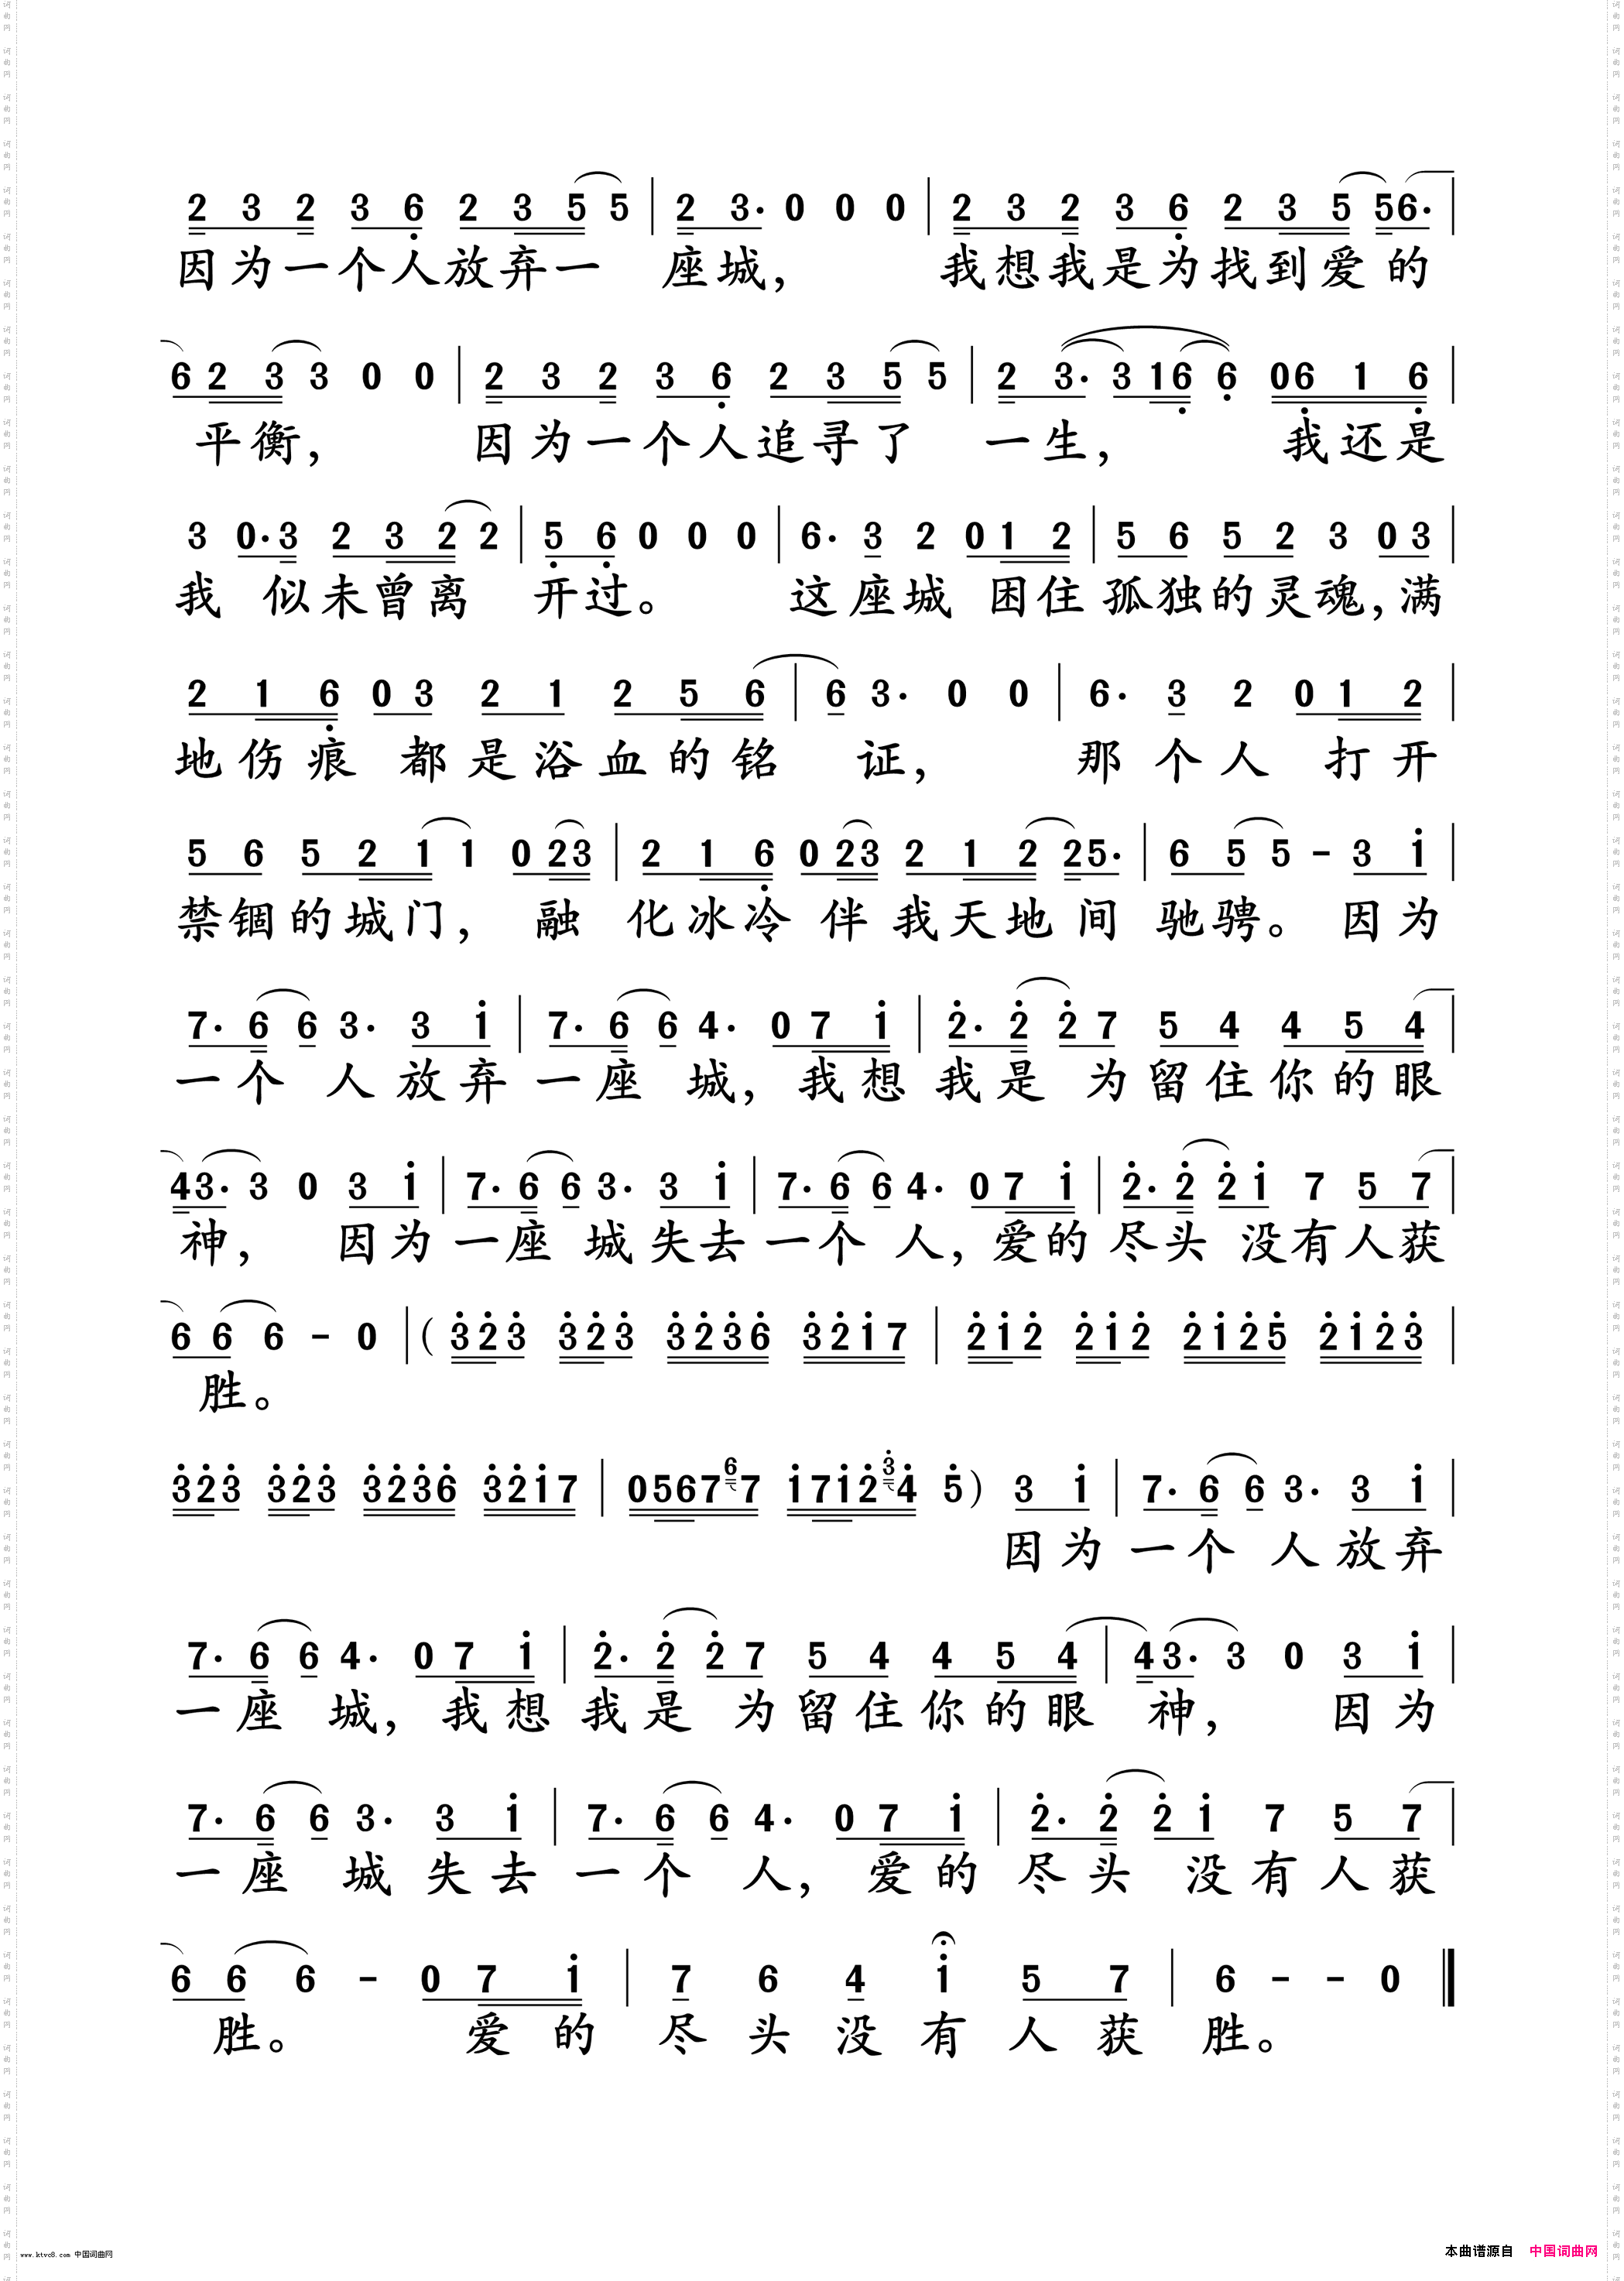 2 3 2 3 6 2 3 5 5 | 2 3· 0 0 0 | 2 3 2 3 6 2 3 5 56· |
因为一个人放弃一 座城， 我想我是为找到爱的
6 2 3 3 0 0 | 2 3 2 3 6 2 3 5 5 | 2 3· 3 16 6 06 1 6 |
平衡， 因为一个人追寻了 一生， 我还是
3 0·3 2 3 2 2 | 5 6 0 0 0 | 6· 3 2 0 1 2 | 5 6 5 2 3 0 3 |
我 似未曾离 开过。 这座城 困住孤独的灵魂，满
2 1 6 0 3 2 1 2 5 6 | 6 3· 0 0 | 6· 3 2 0 1 2 |
地伤痕 都是浴血的铭 证， 那个人 打开
5 6 5 2 1 1 0 23 | 2 1 6 0 23 2 1 2 25· | 6 5 5 - 3 1 |
禁锢的城门， 融 化冰冷 伴我天地间 驰骋。 因为
7· 6 6 3· 3 1 | 7· 6 6 4· 0 7 1 | 2· 2 2 7 5 4 4 5 4 |
一个 人放弃 一座 城，我想 我是 为留住你的眼
43· 3 0 3 1 | 7· 6 6 3· 3 1 | 7· 6 6 4· 0 7 1 | 2· 2 2 1 7 5 7 |
神， 因为 一座 城失去 一个 人，爱的 尽头 没有人获
6 6 6 - 0 |( 323 323 3236 3217 | 212 212 2125 2123 |
胜。
323 323 3236 3217 | 0567 6 7 1712 3 4 5) 3 1 | 7· 6 6 3· 3 1 |
因为 一个 人放弃
7· 6 6 4· 0 7 1 | 2· 2 2 7 5 4 4 5 4 | 43· 3 0 3 1 |
一座 城，我想 我是 为留住你的眼 神， 因为
7· 6 6 3· 3 1 | 7· 6 6 4· 0 7 1 | 2· 2 2 1 7 5 7 |
一座 城失去 一个 人， 爱的 尽头 没有人获
6 6 6 - 0 7 1 | 7 6 4 1 5 7 | 6 - - 0 ‖
胜。 爱的 尽头没有人获 胜。
www.ktvc8.com 中国词曲网
本曲谱源自 中国词曲网